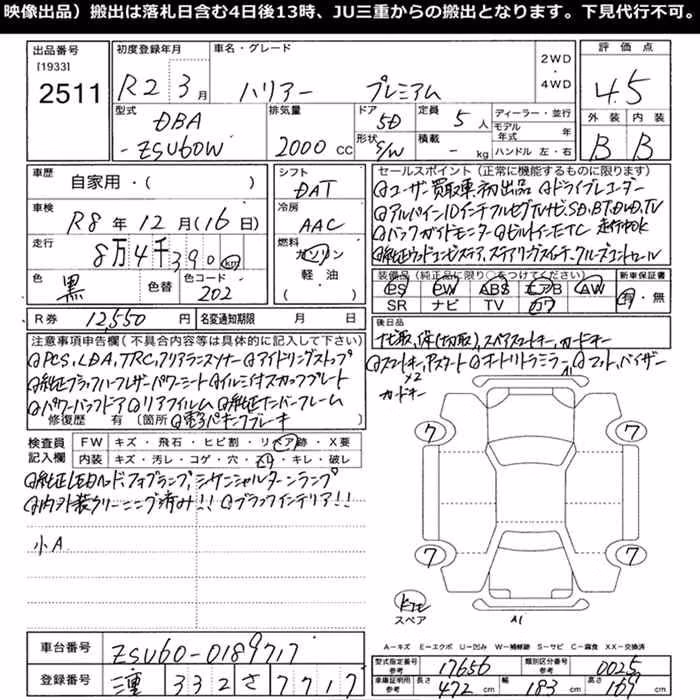 映像出品）搬出は落札日含む4日後13時、JU三重からの搬出となります。下見代行不可。
出品番号
[1933]
2511
初度登録年月
R2 3月
車名・グレード
ハリアー プレミアム
2WD
・
4WD
評価点
4.5
外装 内装
B B
型式
DBA
-ZSU60W
排気量
2000 cc
ドア
5D
形状
S/W
定員
5人
積載
- kg
ディーラー・並行
モデル年式 年
ハンドル 左・右
車歴
自家用・( )
車検
R8年12月(16日)
走行
8万4千390km
色
黒
色替
色コード
202
シフト
DAT
冷房
AAC
燃料
ガソリン
軽油
( )
セールスポイント（正常に機能するものに限ります）
ユーザー買取車初出品 ドライブレコーダー
アルパイン10インチフルセグTVナビ,SD,BT,DVD,TV
バックガイドモニター ビルトインETC 走行中OK
純正ウッドコンビステア,ステアリングスイッチ,クルーズコントロール
装備品（純正品に限り○をつけてください）
PS PW ABS エアB AW
SR ナビ TV カワ
新車保証書
有・無
R券 12,550円
名変通知期限 月 日
後日品
ナビ取,保(切取),スペアスマートキー,カードキー
注意事項申告欄(不具合内容等は具体的に記入して下さい)
PCS,LDA,TRC,クリアランスソナー アイドリングストップ
純正ブラックハーフレザーパワーシート イルミ付スカッフプレート
パワーバックドア リアフィルム 純正ナンバーフレーム
修復歴 有 [箇所 電子パーキングブレーキ
スマートキー,アスマート オートリトラミラー マット,バイザー
×2
カードキー
A1
検査員記入欄
FW キズ・飛石・ヒビ割・リペア跡・X要
内装 キズ・汚レ・コゲ・穴・スレ・キレ・破レ
純正LEDヘッド,フォグランプ,シーケンシャルターンランプ
内外装クリーニング済み!! ブラックインテリア!!
小A
7 7
7 7
スペア
A1
A-キズ E-エクボ U-凹み W-補修跡 S-サビ C-腐食 XX-交換済
車台番号
ZSU60-0189717
登録番号
三重 332 さ 7717
型式指定番号
参考
17656
類別区分番号
参考
0025
車庫証明用
参考
長さ 472 cm
幅 183 cm
高さ 169 cm